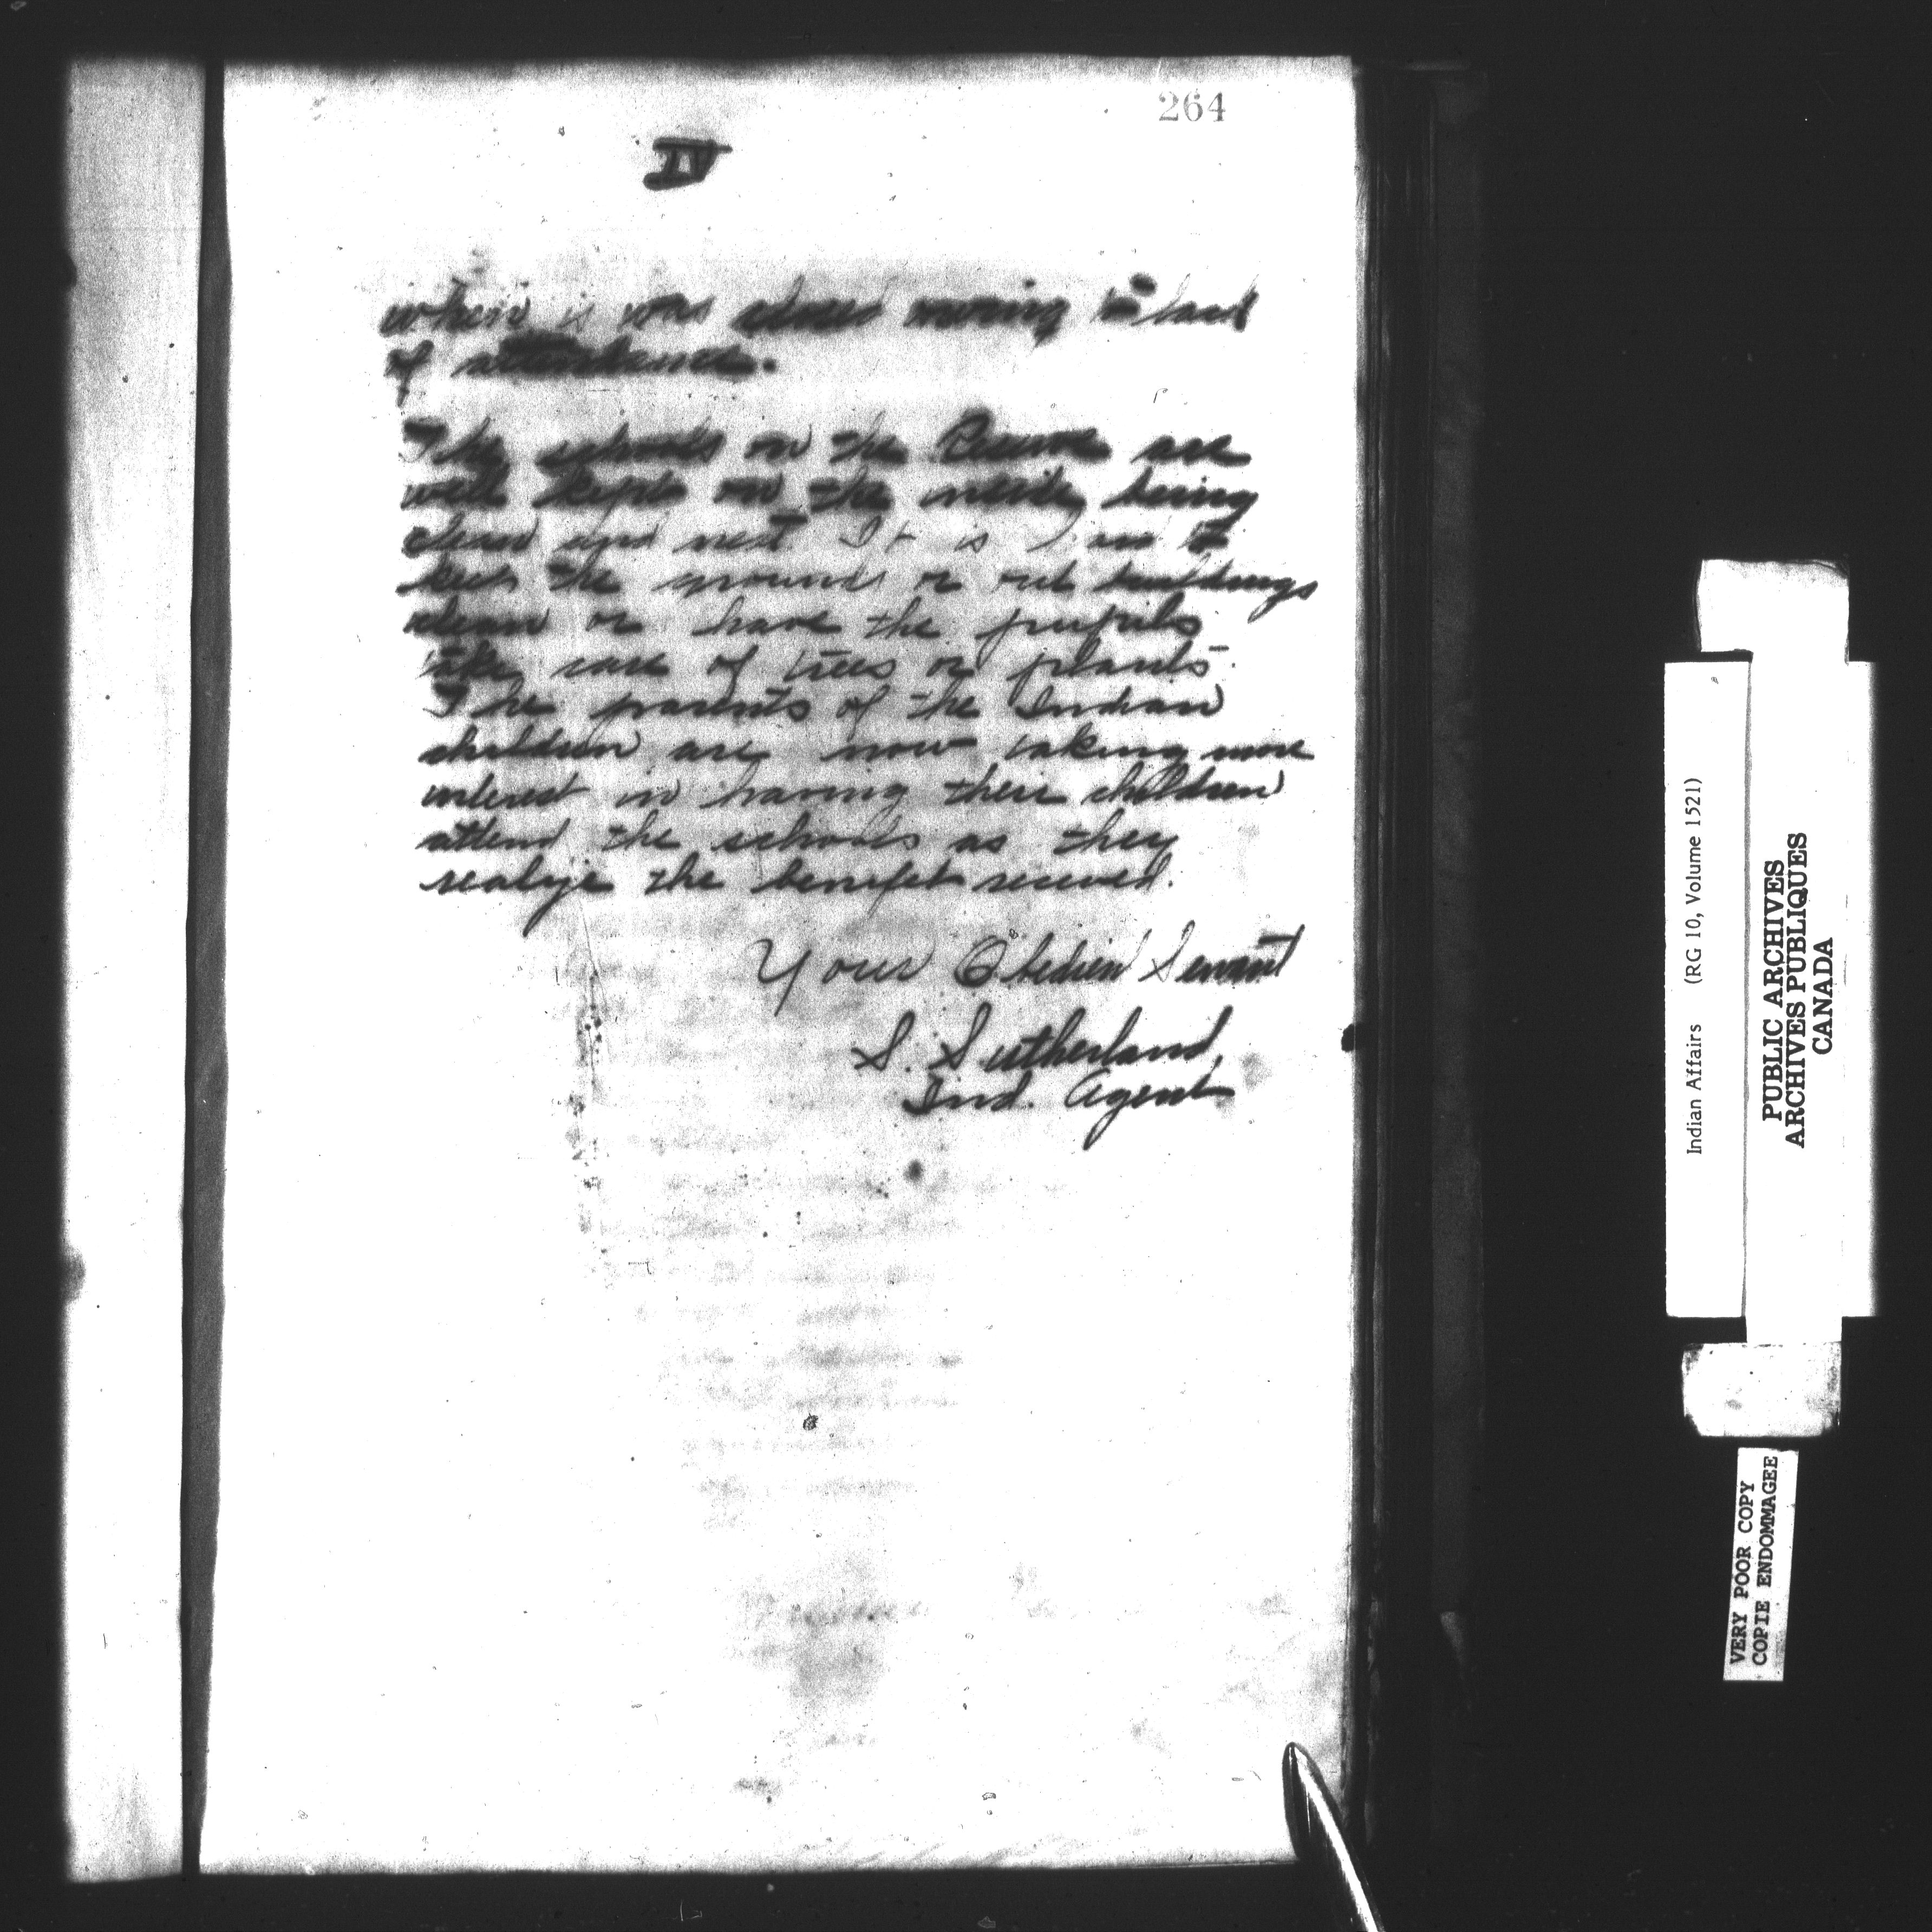 264
IV
where is was closed owing to lack
of attendance.
The schools on the Reserve are
well kept on the inside being
clean and neat. It is to
keep the grounds or out buildings
clean or have the pupils
take care of trees or plants.
The parents of the Indian
children are now taking more
interest in having their children
attend the schools as they
realize the benefit received.
Your Obedient Servant
S. Sutherland,
Ind. Agent
Indian Affairs (RG 10, Volume 1521)
PUBLIC ARCHIVES
ARCHIVES PUBLIQUES
CANADA
VERY POOR COPY
COPIE ENDOMMAGEE